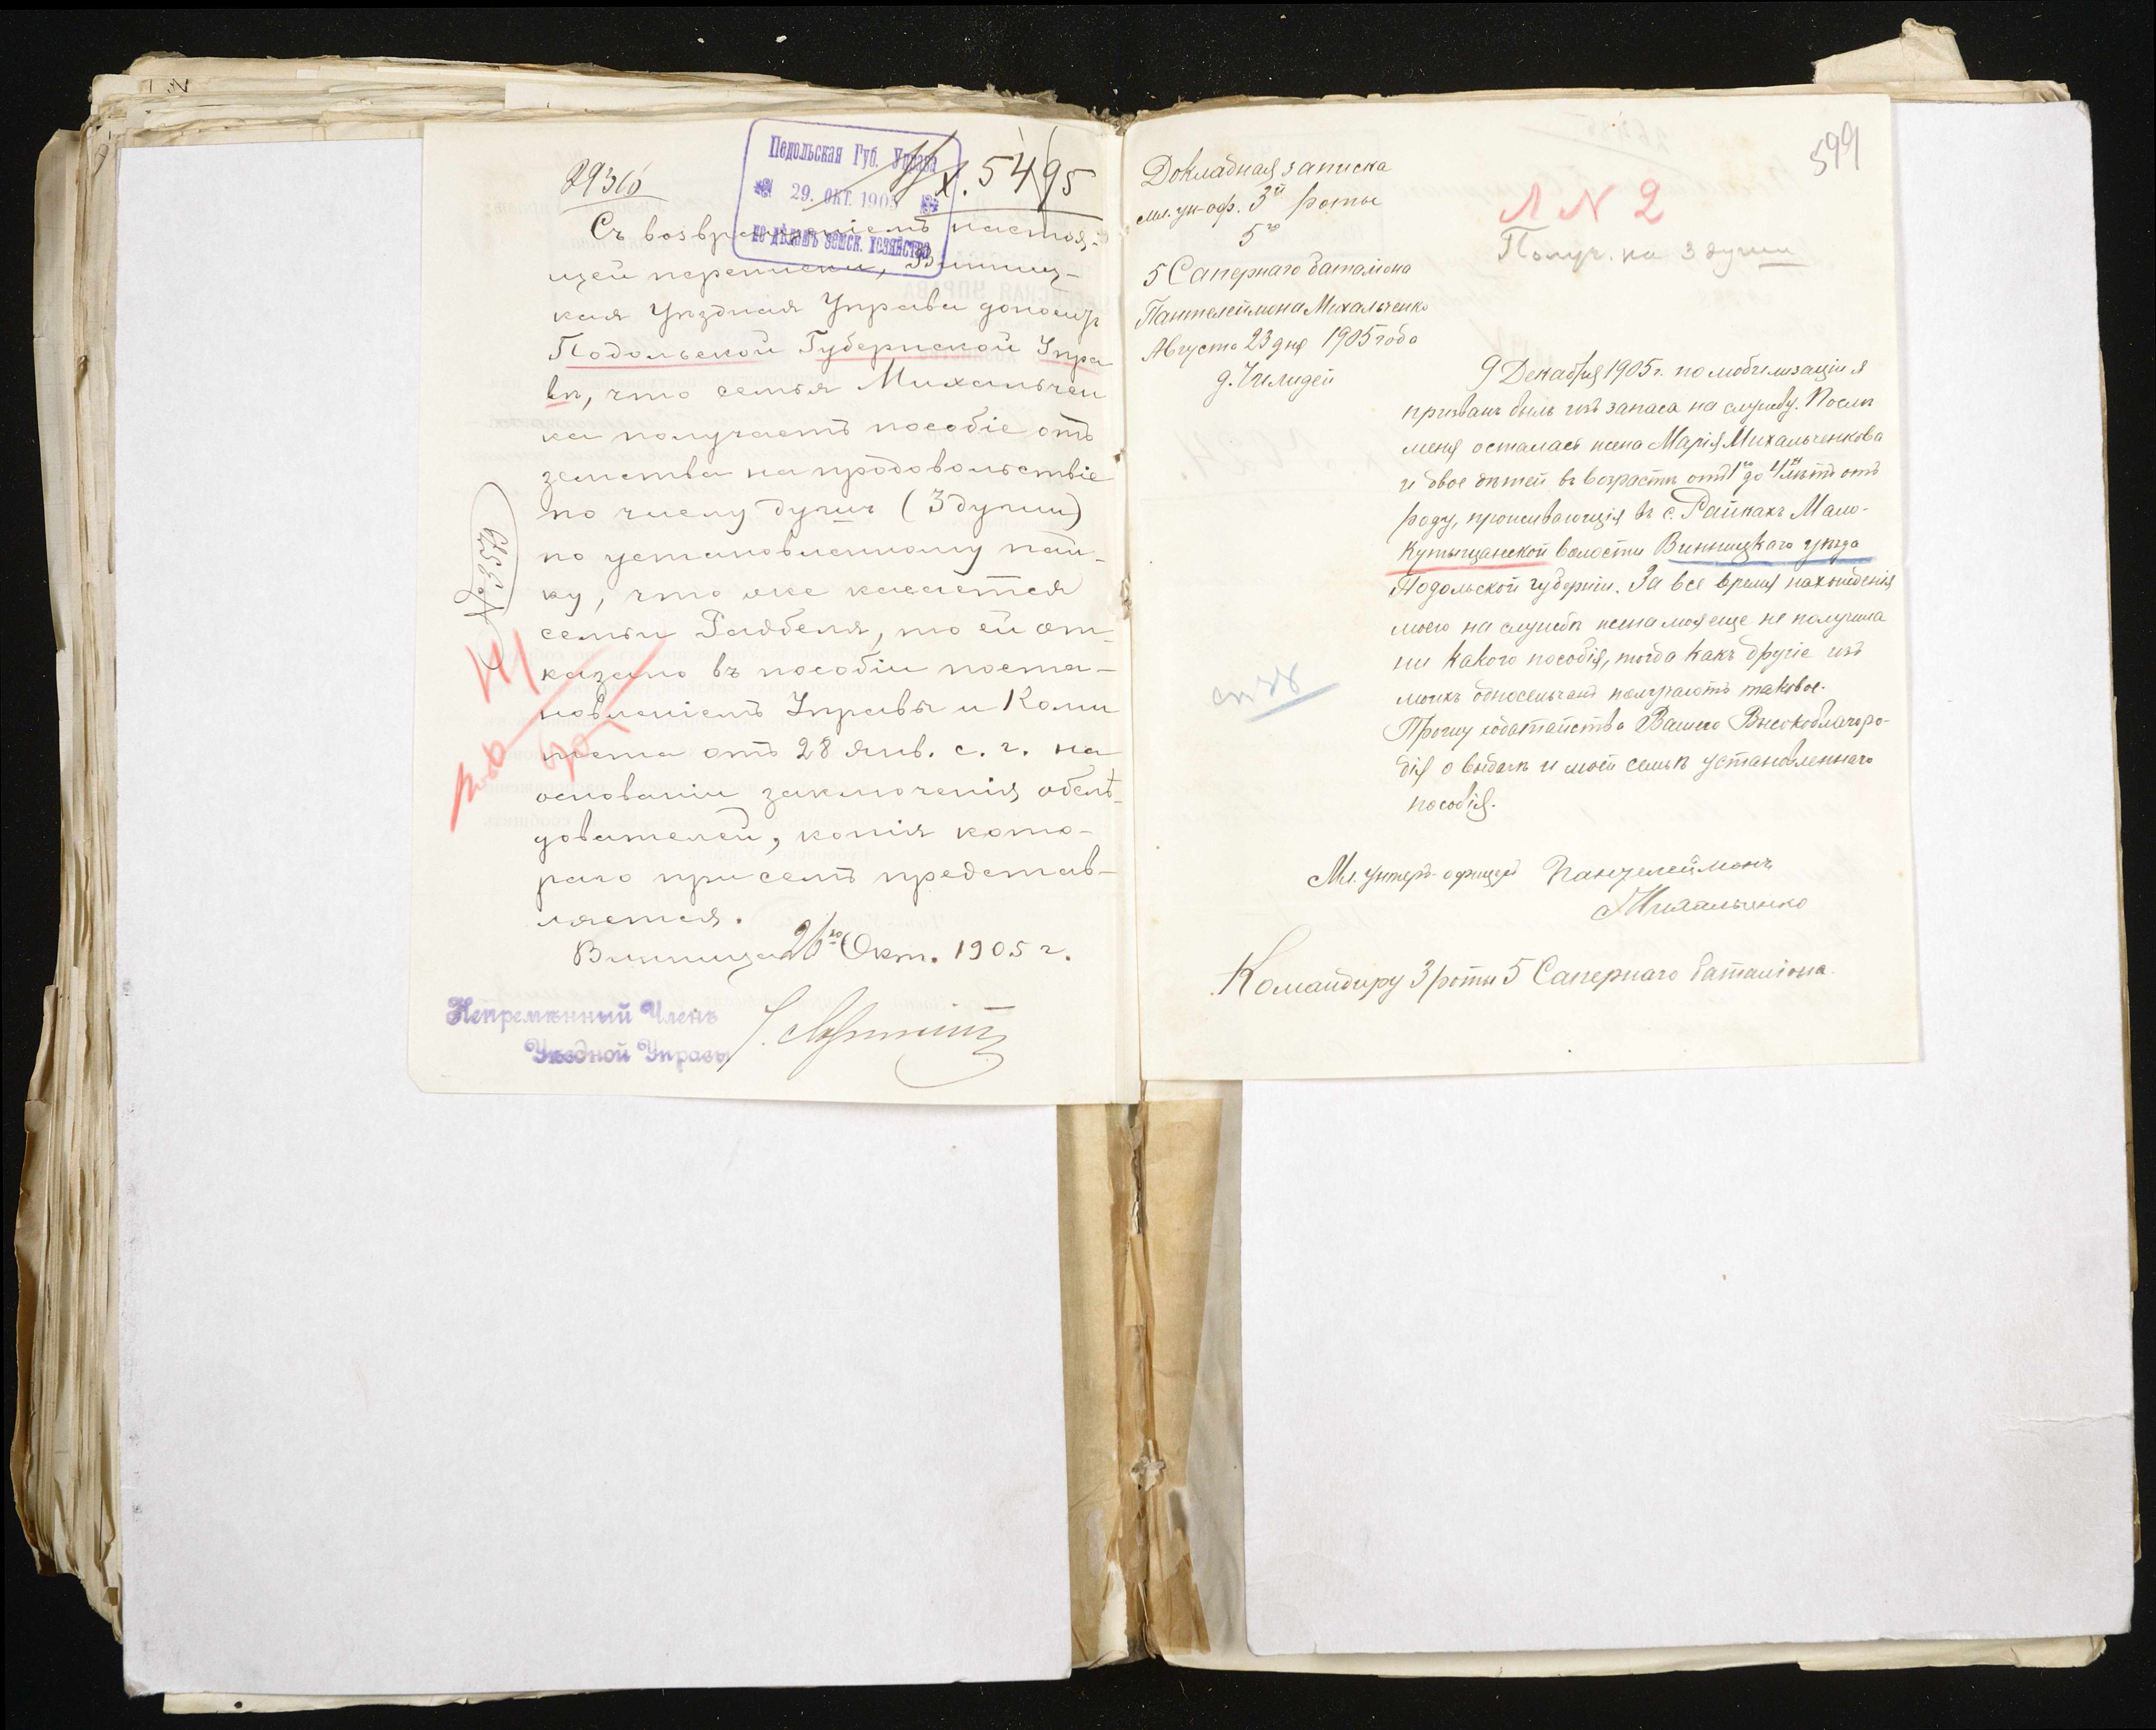 Подольская Губ. Управа
29. ОКТ. 1905
по дѣламъ земск. хозяйства
5495
Съ возвращеніемъ настоя-
щей переписки, Винниц-
кая Уѣздная Управа доноситъ
Подольской Губернской Упра
вѣ, что семья Михальчен
ка получаетъ пособіе отъ
земства на продовольствіе
по числу душъ (3 души)
по установленному пай-
ку, что же касается
семьи Гайбеля, то ей от-
казано въ пособіи поста-
новленіемъ Управы и Коми
тета отъ 28 янв. с. г. на
основаніи заключенія обслѣ-
дователей, копія кото-
раго при семъ представ-
ляется.
Винница 26го Окт. 1905 г.
Непремѣнный Членъ
Уѣздной Управы
599
Л N 2
Получ. на 3 души
Докладная записка
мл. ун-оф. 3й роты
5го
5 Сапернаго баталіона
Пантелеймона Михальченко
Августа 23 дня 1905 года
9 Декабря 1905 г. по мобилизаціи я
призванъ былъ изъ запаса на службу. Послѣ
меня осталась жена Марія Михальченкова
и двое дѣтей въ возрастѣ отъ 1го до 4хъ лѣтъ отъ
роду, проживающія въ с. Райкахъ Мало-
Кутыщанской волости Винницкаго уѣзда
Подольской губерніи. За все время нахожденія
моего на службѣ жена моя еще не получила
ни какого пособія, тогда какъ другіе изъ
моихъ односельчанъ получаютъ таковое.
Прошу ходатайства Вашего Высокоблагоро-
дія о выдачѣ и моей семьѣ установленнаго
пособія.
Мл. унтеръ-офицеръ Пантелеймонъ
Михальченко
Командиру 3 роты 5 Сапернаго баталіона.